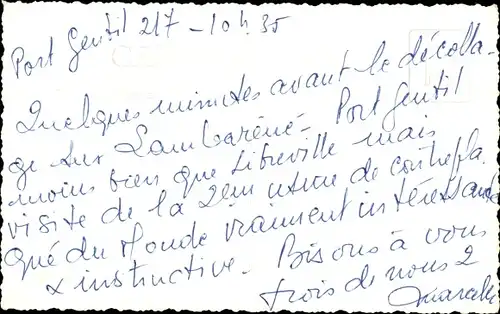 Port Gentil 2/7 - 10h.35
Quelques minutes avant le décolla-
ge sur Lambaréné. Port Gentil
moins bien que Libreville mais
visite de la 2ème usine de contrepla-
qué du Monde vraiment intéressante
& instructive. Bisous à vous
trois de nous 2